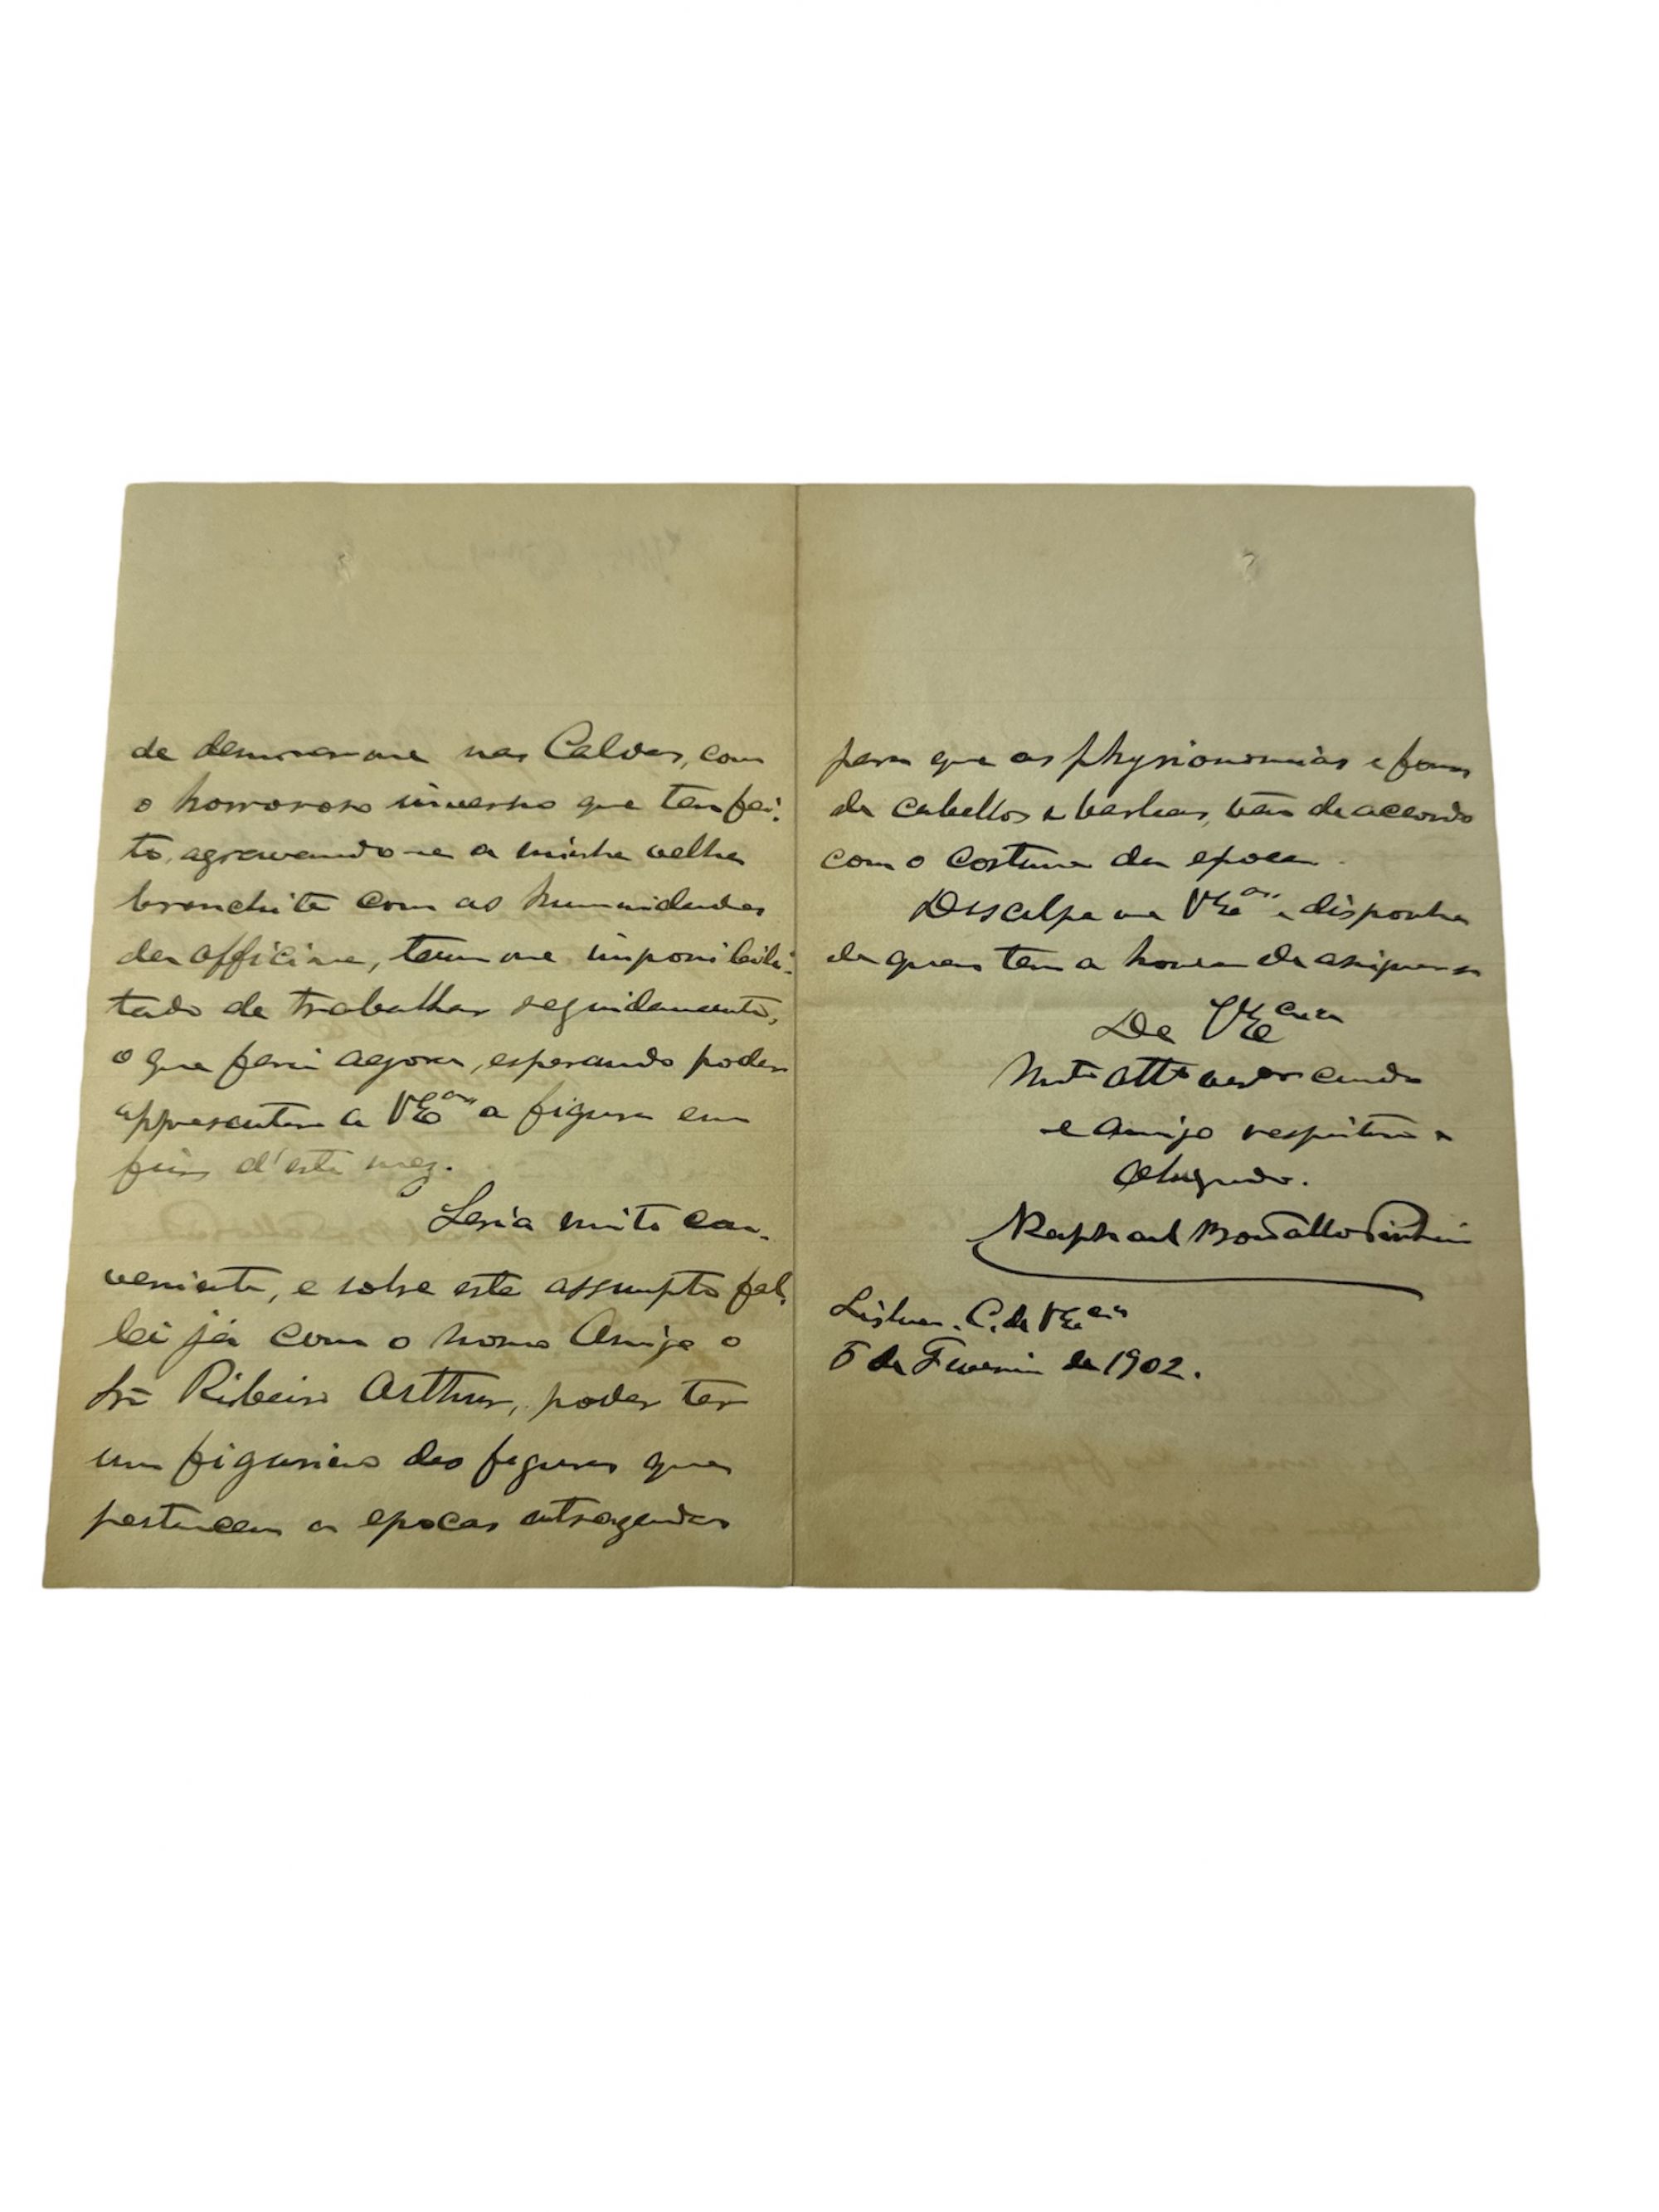 de demorar-me nas Caldas, com
o horroroso inverno que tem fei-
to, agravando-se a minha velha
bronchite com as humidades
da officina, tem-me impossibili-
tado de trabalhar seguidamente,
o que farei agora, esperando poder
appresentar a V Exª a figura em
fins d'este mez.
Seria muito con-
veniente, e sobre este assumpto fal-
lei já com o nosso Amigo o
Snr Ribeiro Arthur, poder ter
um figurino das figuras que
pertencem a epocas atrazadas
para que as physionomias e forma
de cabellos e barbas, vão de accordo
com o costume da epoca.
Desculpe me V Exª e disponha
de quem tem a honra de assignar-se
De V Exª
Mtº Attº venerador
e Amigo respeitoso e
Obrigado.
Raphael Bordallo Pinheiro
Lisboa. C. de V Exª
5 de Fevereiro de 1902.